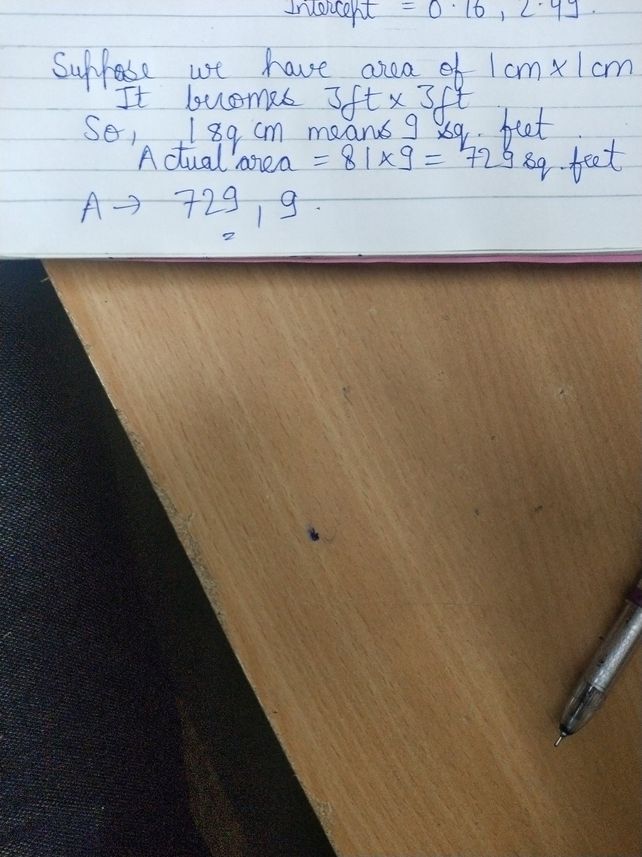 Intercept = 0.16, 2.49.
Suppose we have area of 1cm x 1cm
It becomes 3ft x 3ft
So, 1 sq cm means 9 sq. feet.
Actual area = 81x9 = 729 sq. feet
A → 729, 9.